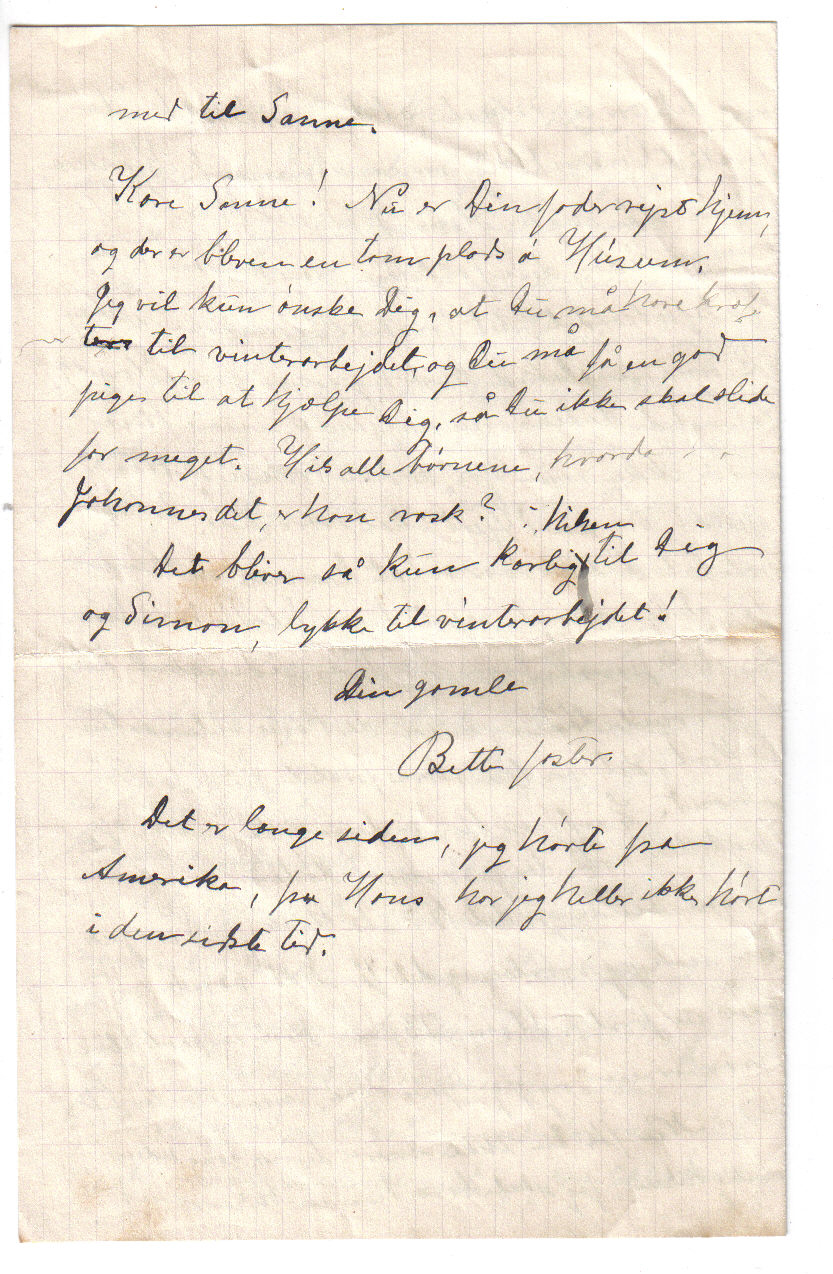 med til Sanne.
Kære Sanne! Nu er Din fader rejst hjem,
og der er bleven en tom plads å Húsum.
Jeg vil kun ønske Dig, at Du må have
til vinterarbejdet, og Du må få en god
pige til at hjælpe Dig, så Du ikke skal slide
for meget. Hils alle børnene, hvorda
Johannes det, er han rask?
Det bliver så kun kærlig hilsen til Dig
og Simon, lykke til vinterarbejdet!
Din gamle
Bette faster.
Det er længe siden, jeg hørte fra
Amerika, fra Hans har jeg heller ikke hørt
i den sidste tid.